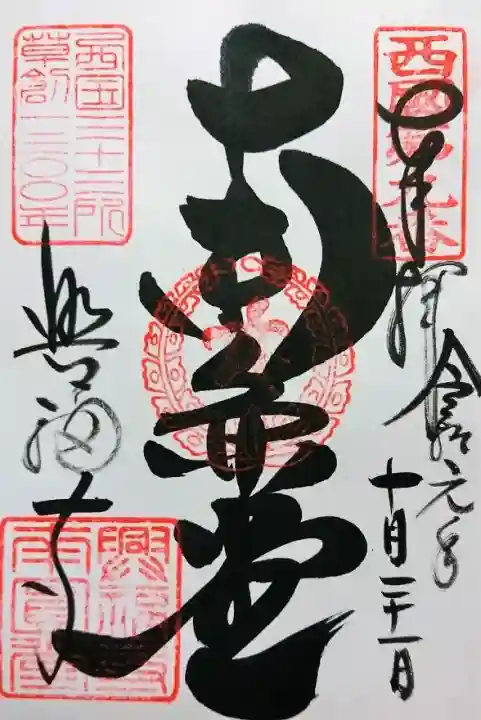 西國第九番
奉拝
令和元年
十月二十一日
南円堂
西国三十三所
草創一三〇〇年
興福寺